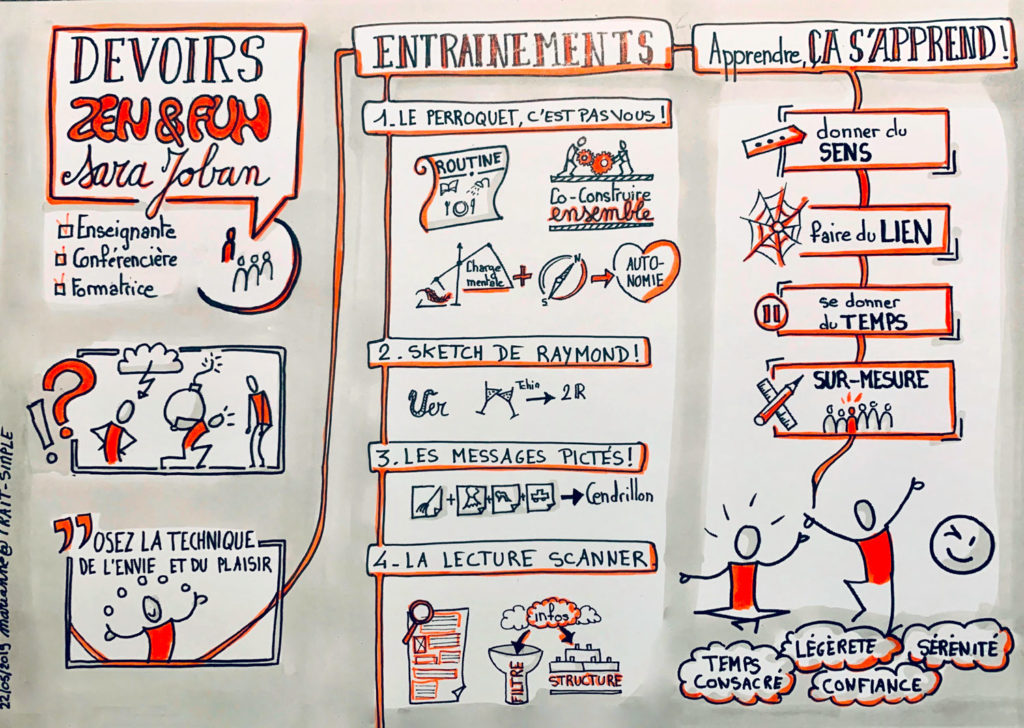 DEVOIRS
ZEN & FUN
Sara Joban
Enseignante
Conférencière
Formatrice
!?
"OSEZ LA TECHNIQUE
DE L'ENVIE ET DU PLAISIR
22/05/2019 marianne@TRAIT-SIMPLE
ENTRAINEMENTS
1. LE PERROQUET, C'EST PAS VOUS !
ROUTINE
Co-Construire
ensemble
Charge
mentale
+
N
S
AUTO-
NOMIE
2. SKETCH DE RAYMOND !
Ver
Tchin
2R
3. LES MESSAGES PICTÉS !
+ + + Cendrillon
4. LA LECTURE SCANNER
infos
FILTRE
STRUCTURE
Apprendre, ÇA S'APPREND !
donner du
SENS
faire du LIEN
se donner
du TEMPS
SUR-MESURE
TEMPS
CONSACRÉ
LÉGÈRETÉ
CONFIANCE
SÉRÉNITÉ